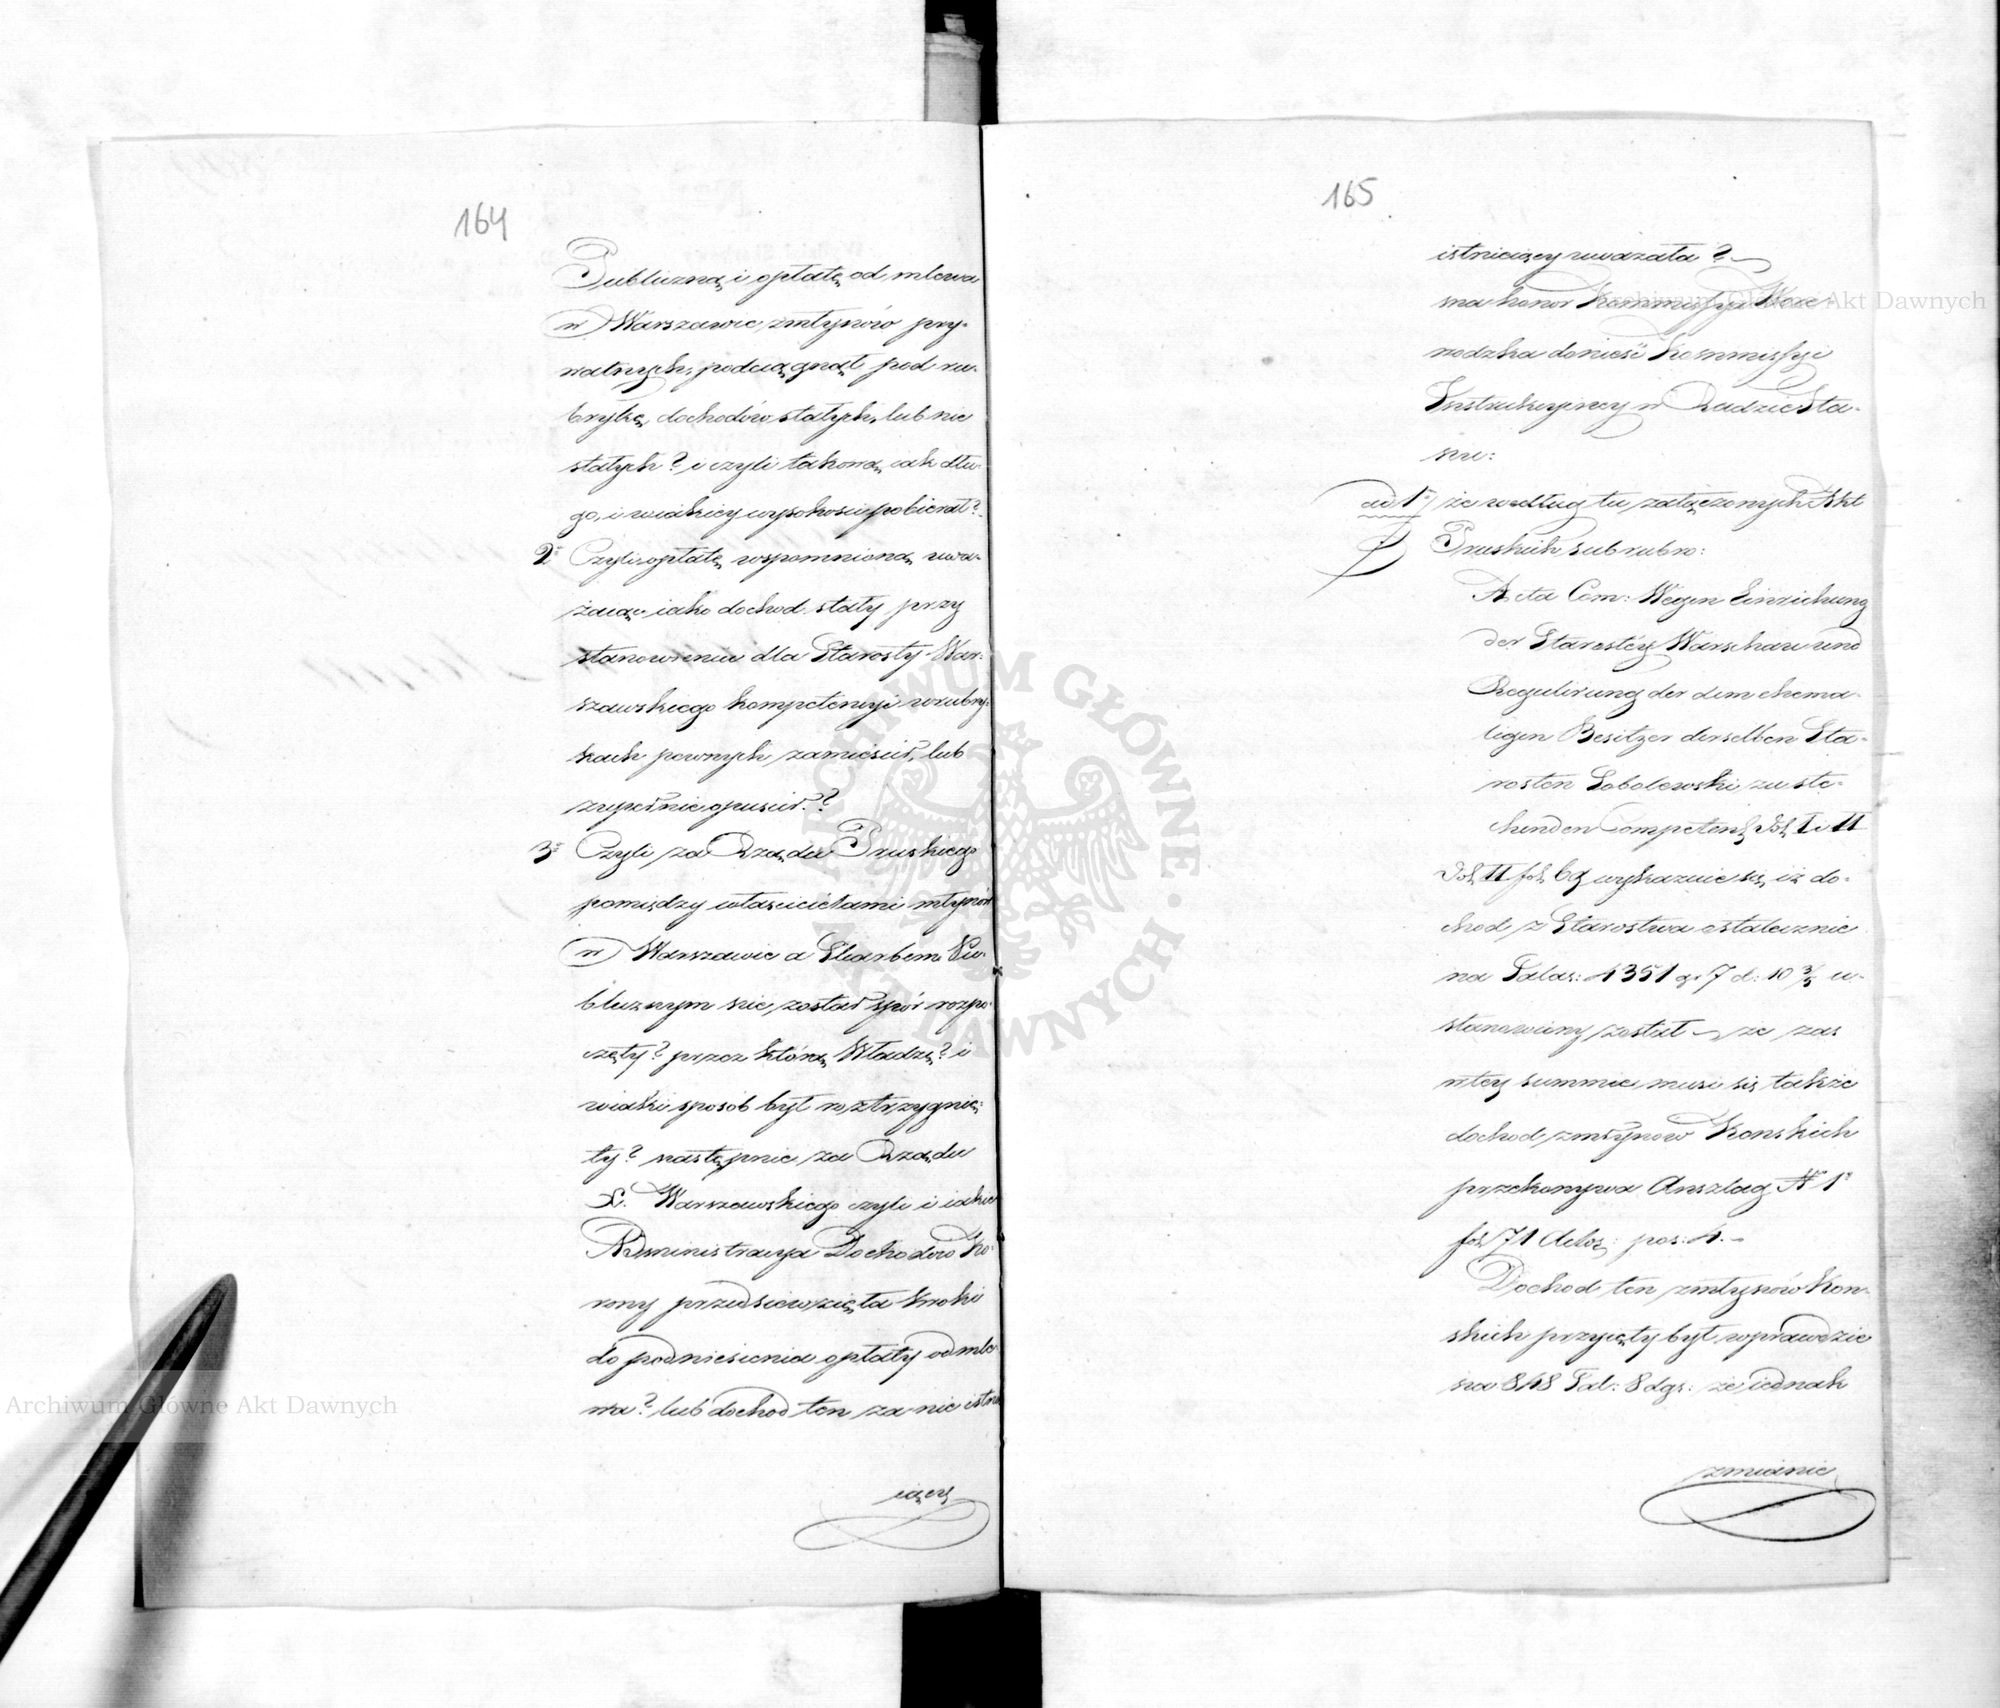 164
Publiczną i opłatę od mlewa
w Warszawie z młynów pry-
watnych, podciągnął pod ru-
brykę dochodów stałych, lub nie
stałych? i czyli takową, iak dłu-
go, i w iakiey wysokości pobierał?
2° Czyli opłatę wspomnioną uwa-
żaiąc iako dochod stały przy
stanowieniu dla Starosty War-
szawskiego kompetencyi w rubry-
kach pewnych zamieścił, lub
zupełnie opuścił??
3° Czyli za Rządu Pruskiego
pomiędzy właścicielami młynów
w Warszawie a Skarbem Pu-
blicznym nie został spór rozpo-
częty? przez którą Władzę? i
w iaki sposób był roztrzygnię-
ty? następnie za Rządu
X. Warszawskiego czyli i iakie
Administracya Dochodów Ko-
rony przedsiewzięła kroki
do podniesienia opłaty od mle-
wa? lub dochod ten za nie istnie
iący
165
istnieiący uważała?
ma honor Kommissya Woie-
wodzka donieść Kommissyi
Instrukcyiney w Radzie Sta-
nu:
ad 1° że według tu załączonych Akt
Pruskich sub rubro:
Acta Com: Wegen Einziehung
der Starostey Warschau und
Regulirung der dem ehema-
ligen Besitzer derselben Sta-
rosten Sobolewski zu ste-
henden Competenz Vol. I i II
Vol. II fol. 69 wykazuie się, iż do-
chod z Starostwa ostatecznie
na Talar: 4351 g. 7 d: 10 3/5 u-
stanowiony został – że zaś
w tey summie musi się także
dochod z młynow Konskich
przekonywa Anszlag N 1°
fol. 71 pos: 4. –
Dochod ten z młynów Kon-
skich przyięty był wprawdzie
na 848 Tal: 8 dgr: że iednak
zmianie
Archiwum Główne Akt Dawnych
Archiwum Główne Akt Dawnych
ARCHIWUM GŁÓWNE AKT DAWNYCH